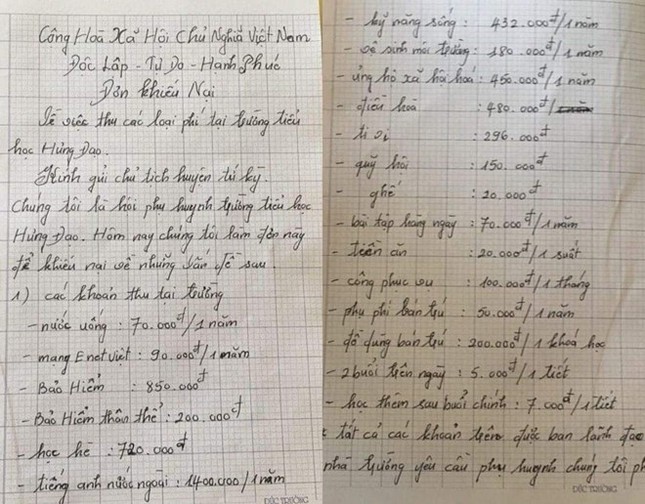 Công Hoà Xã Hội Chủ Nghĩa Việt Nam
Độc Lập - Tự Do - Hạnh Phúc
Đơn khiếu Nại
Về việc thu các loại phí tại trường tiểu
học Hưng Đạo.
Kính gửi chủ tịch huyện tứ kỳ.
Chúng tôi là hội phụ huynh trường tiểu học
Hưng Đạo. Hôm nay chúng tôi làm đơn này
để khiếu nại về những vấn đề sau.
1) các khoản thu tại trường
- nước uống : 70.000đ/1 năm
- mạng Enetviet : 90.000đ/1 năm
- Bảo Hiểm : 850.000đ
- Bảo Hiểm thân thể : 200.000đ
- học hè : 720.000đ
- tiếng anh nước ngoài : 1400.000/1 năm
ĐỨC TRƯỜNG
- kỹ năng sống : 432.000đ/1 năm
- vệ sinh môi trường : 180.000đ/1 năm
- ủng hộ xã hội hoá : 450.000đ/1 năm
- điều hoà : 480.000đ/
- ti vi : 296.000đ
- quỹ hội : 150.000đ
- ghế : 20.000đ
- bài tập hàng ngày : 70.000đ/1 năm
- tiền ăn : 20.000đ/1 suất
- công phục vụ : 100.000đ/1 tháng
- phụ phí bán trú : 50.000đ/1 năm
- đồ dùng bán trú : 200.000đ/1 khoá học
- 2 buổi trên ngày : 5.000đ/1 tiết
- học thêm sau buổi chính : 7.000đ/1 tiết
tất cả các khoản trên được ban lãnh đạo
nhà trường yêu cầu phụ huynh chúng tôi ph
ĐỨC TRƯỜNG